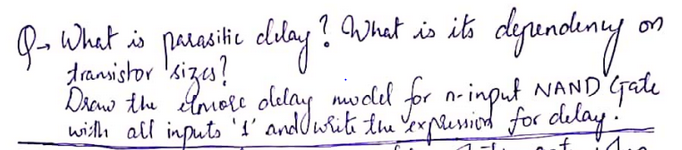 Q→ What is parasitic delay? What is its dependency on
transistor sizes?
Draw the elmore delay model for n-input NAND Gate
with all inputs '1' and write the expression for delay.